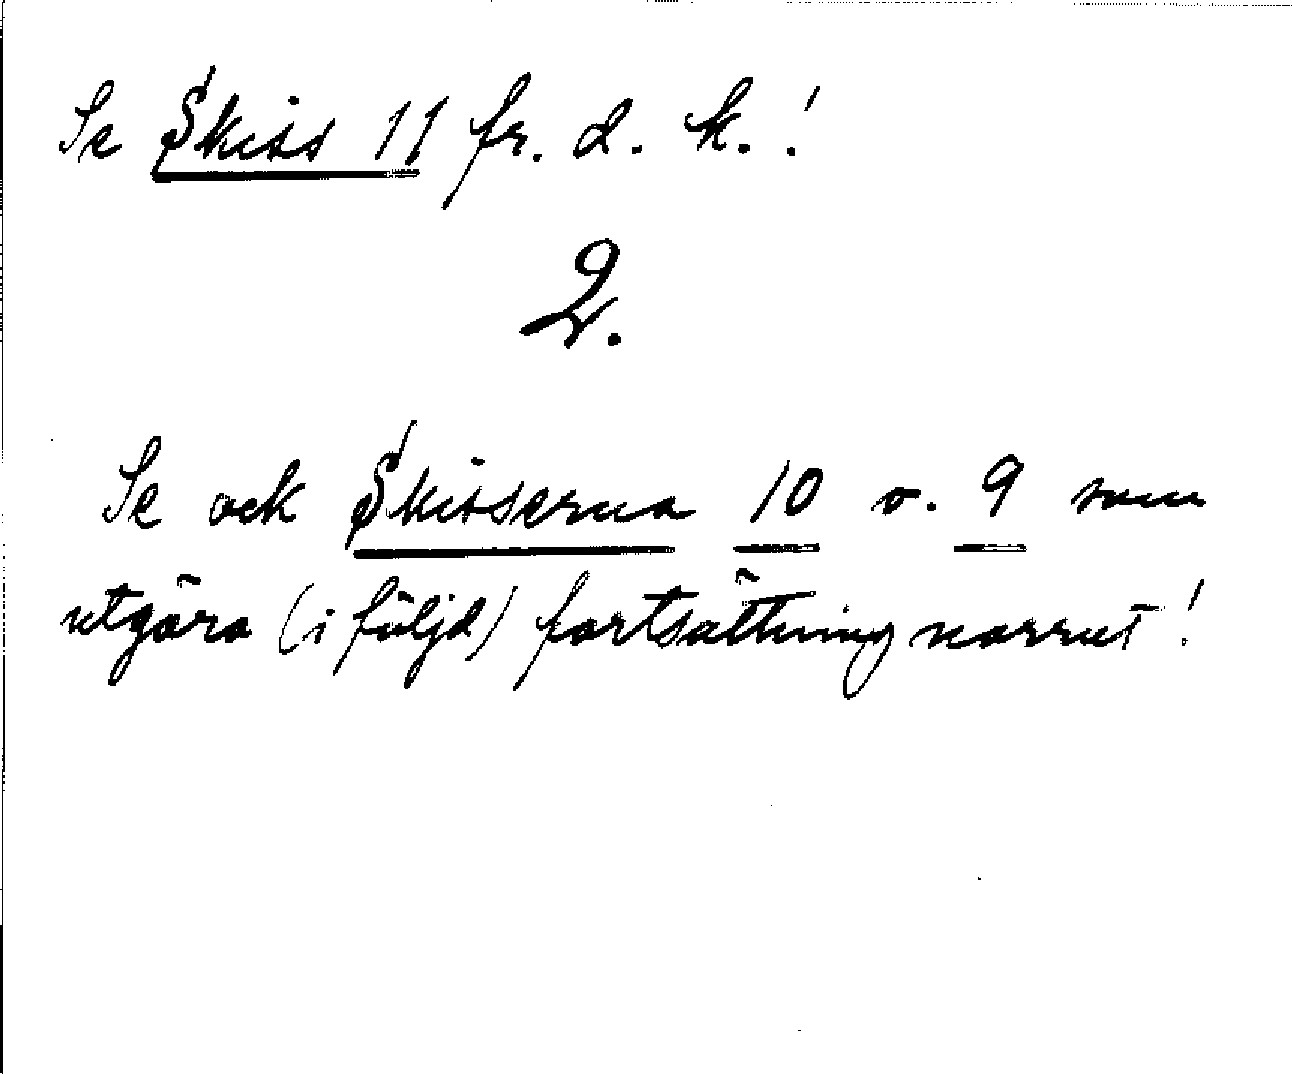 Se Skiss 11 fr. d. k.!
2.
Se ock Skisserna 10 o. 9 som
utgöra (i följd) fortsättning norrut!